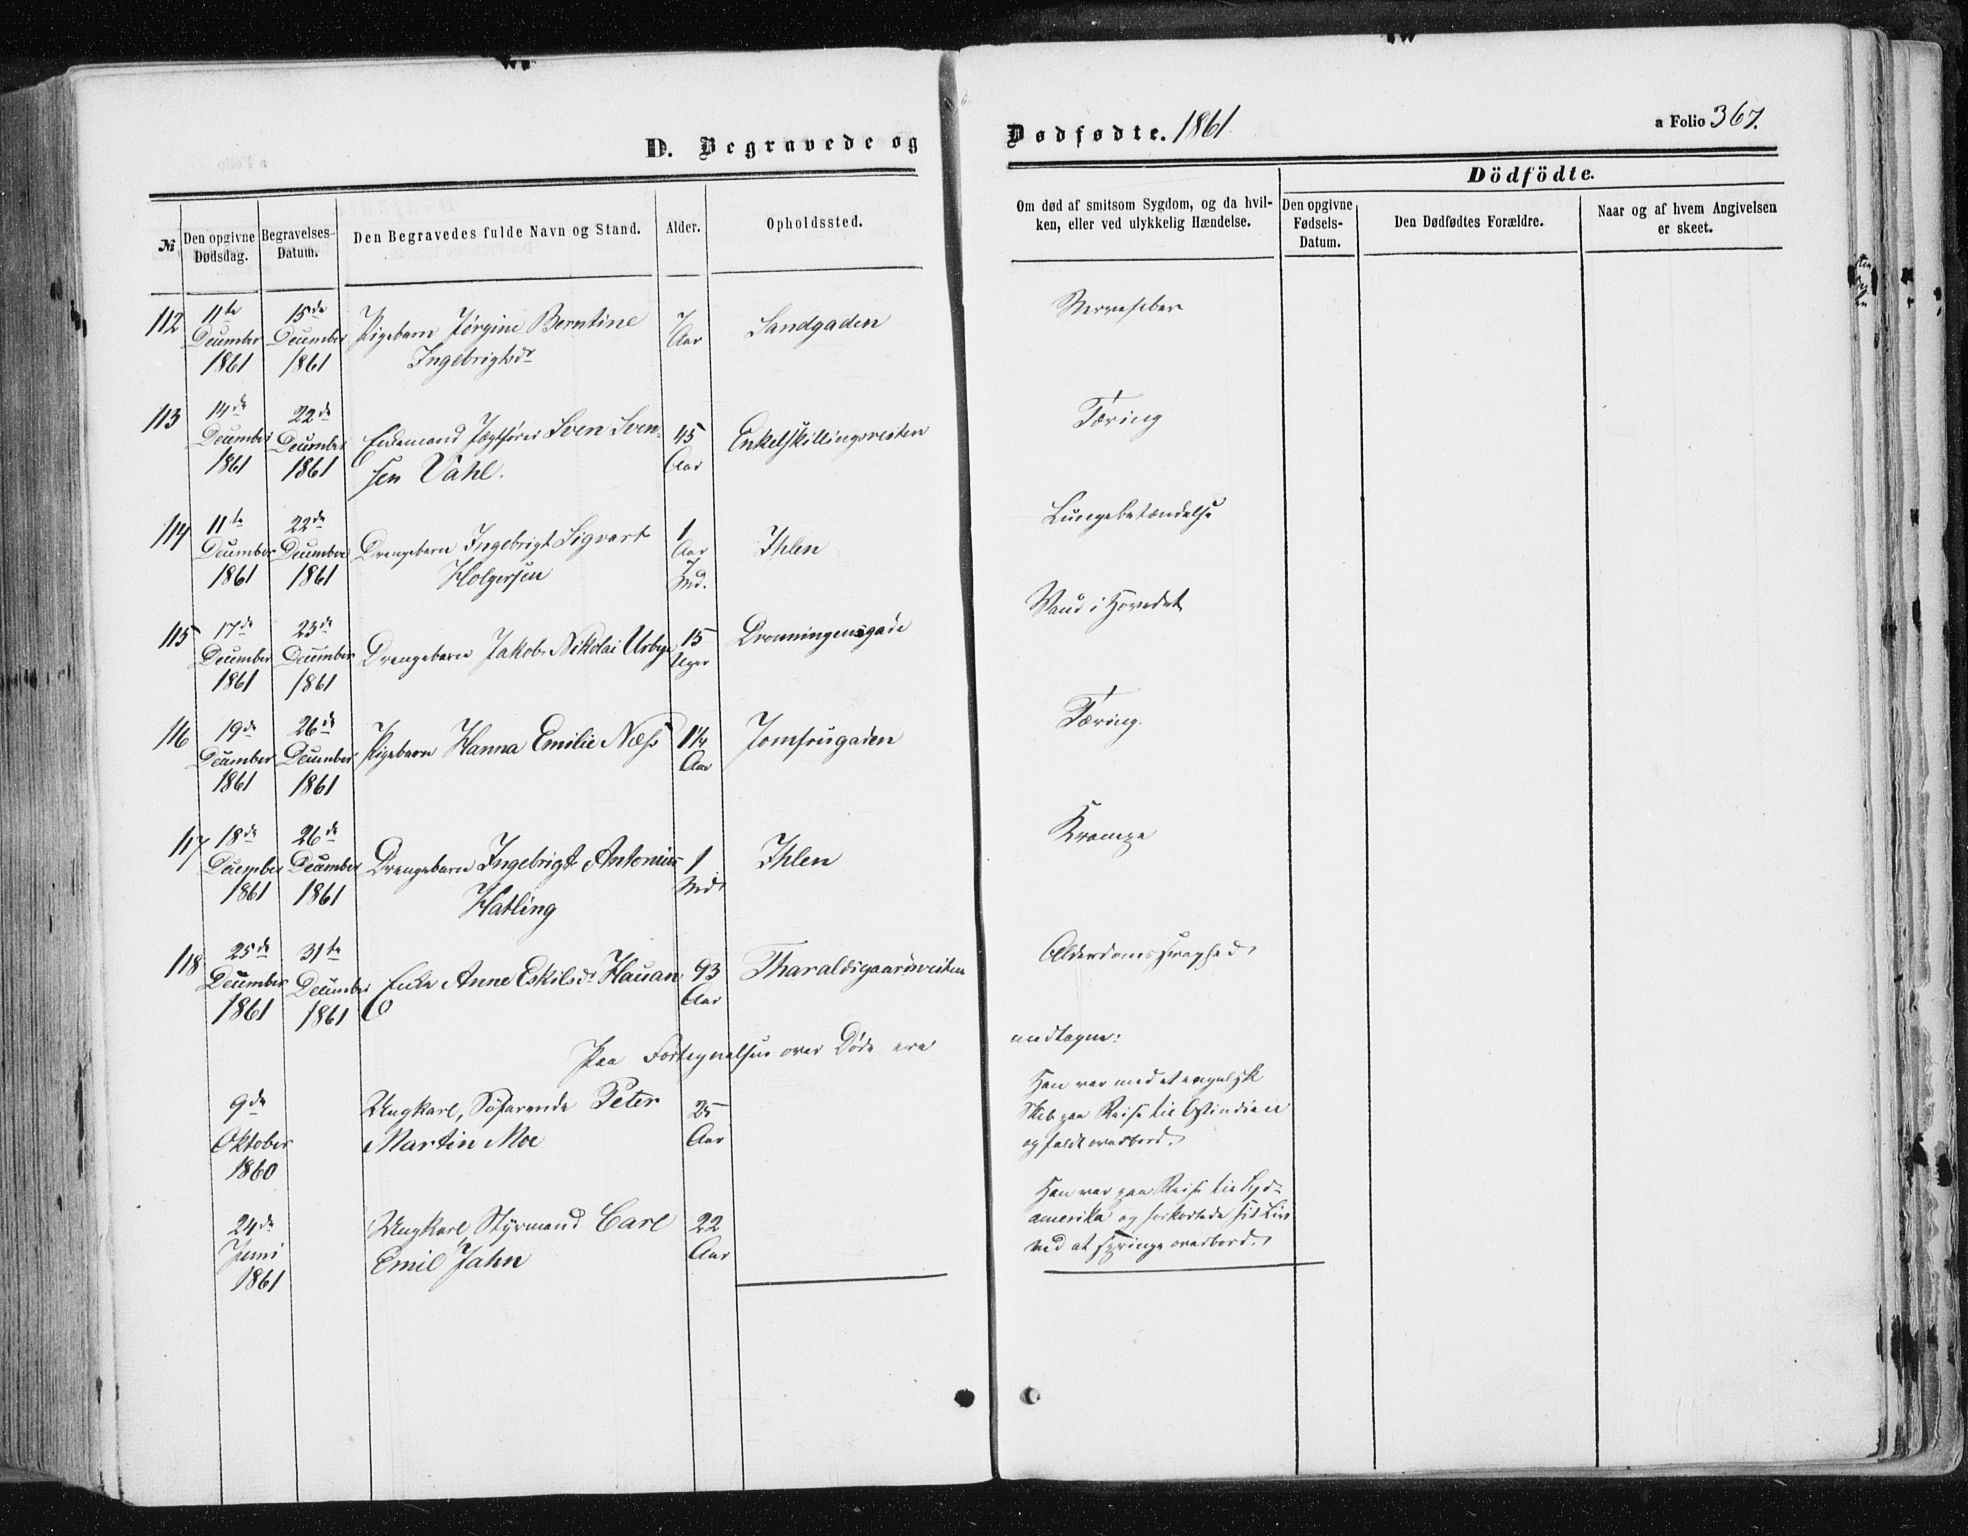 D. Begravede og Dødfødte. 1861 a Folio 367.
№
Den opgivne Dødsdag.
Begravelses-Datum.
Den Begravedes fulde Navn og Stand.
Alder.
Opholdssted.
Om død af smitsom Sygdom, og da hvil-
ken, eller ved ulykkelig Hændelse.
Dödfödte.
Den opgivne Fødsels-Datum.
Den Dødfødtes Forældre.
Naar og af hvem Angivelsen
er skeet.
112 11te December 1861 15de December 1861 Pigebarn Jørgine Berntine
Ingebrigtsdr 7 Aar Sandgaden Nervefeber
113 14de December 1861 22de December 1861 Enkemand Jægtfører Sven Sven-
sen Vahl. 45 Aar Enkelskillingsveiten Tæring
114 11te December 1861 22de December 1861 Drengebarn Ingebrigt Sigvart
Holgersen 1 Aar 7 Md. Ihlen Lungebetændelse
115 17de December 1861 23de December 1861 Drengebarn Jakob Nikolai Urbye 15 Uger Dronningensgade Vand i Hovedet
116 19de December 1861 26de December 1861 Pigebarn Hanna Emilie Næss 1¼ Aar Jomfrugaden Tæring.
117 18de December 1861 26de December 1861 Drengebarn Ingebrigt Antonius
Hatling 1 Md. Ihlen Krampe
118 25de December 1861 31te December 1861 Enke Anne Eskilsdr Hauan 93 Aar Tharaldsgaardsveiten Alderdomssvaghed
Paa Fortegnelsen over Døde ere modtagne:
9de Oktober 1860 Ungkarl, Søfarende Peter
Martin Moe 25 Aar Han var med et engelsk
Skib paa Reise til Ostindien
og faldt overbord.
24de Juni 1861 Ungkarl, Styrmand Carl
Emil Jahn 22 Aar Han var paa Reise til Syd-
amerika og forkortede sit Liv
ved at springe overbord.